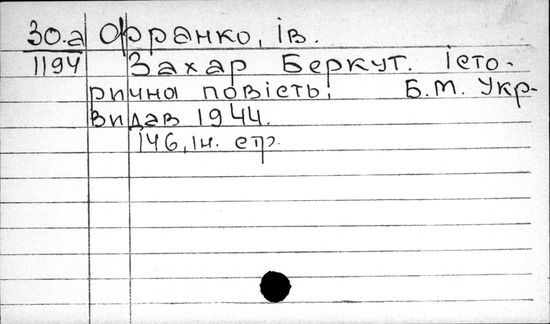 30.а Франко, ів.
1194 Захар Беркут. істо-
рична повість, Б.М. Укр-
видав 1944.
146, ін. стр.